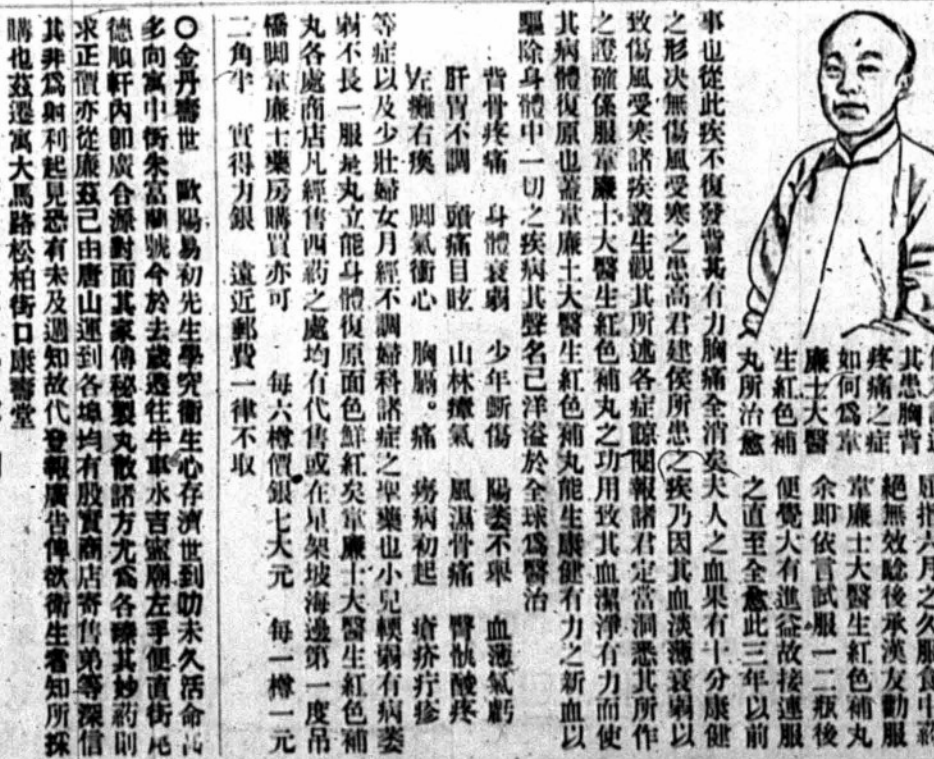 其患胸背
疼痛之症
如何爲韋
廉士大醫
生紅色補
丸所治愈
屈指六月之久服食中葯
絕無效驗後承漢友勸服
韋廉士大醫生紅色補丸
余即依言試服一二瓶後
便覺大有進益故接連服
之直至全愈此三年以前
事也從此疾不復發背其有力胸痛全消矣夫人之血果有十分康健
之形决無傷風受寒之患高君建侯所患之疾乃因其血淡薄衰弱以
致傷風受寒諸疾叢生觀其所述各症諒閱報諸君定當洞悉其所作
之證確係服韋廉士大醫生紅色補丸之功用致其血潔淨有力而使
其病體復原也蓋韋廉士大醫生紅色補丸能生康健有力之新血以
驅除身體中一切之疾病其聲名已洋溢於全球爲醫治
背骨疼痛 身體衰弱 少年斲傷 陽萎不舉 血薄氣虧
肝胃不調 頭痛目眩 山林瘴氣 風濕骨痛 臀骱酸疼
左癱右瘓 脚氣衝心 胸膈。痛 癆病初起 瘡疥疔疹
等症以及少壯婦女月經不調婦科諸症之聖藥也小兒輭弱有病萎
弱不長一服是丸立能身體復原面色鮮紅矣韋廉士大醫生紅色補
丸各處商店凡經售西葯之處均有代售或在星架坡海邊第一度吊
橋脚韋廉士藥房購買亦可 每六樽價銀七大元 每一樽一元
二角半 實得力銀 遠近郵費一律不取
〇金丹壽世 歐陽易初先生學究衛生心存濟世到叻未久活命
多向寓中街朱富蘭號今於去歲遷往牛車水吉寧廟左手便直街尾
德順軒內即廣合源對面其家傳秘製丸散諸方尤爲各臻其妙葯則
求正價亦從廉茲已由唐山運到各埠均有殷實商店寄售弟等深信
其非爲射利起見恐有未及週知故代登報廣告俾欲衛生者知所採
購也茲遷寓大馬路松柏街口康壽堂